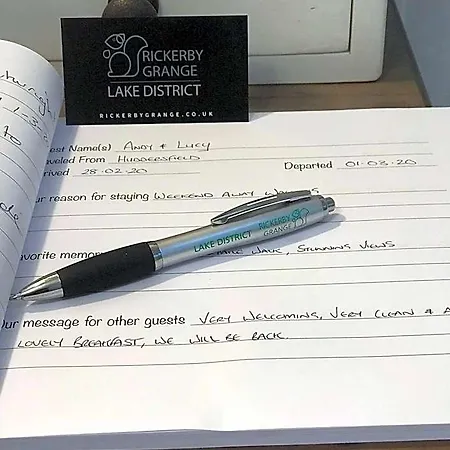 RICKERBY
GRANGE
LAKE DISTRICT
RICKERBYGRANGE.CO.UK
est Name(s) ANDY & LUCY
aveled From HUDDERSFIELD
rived 28.02.20 Departed 01.03.20
ur reason for staying WEEKEND AWAY
LAKE DISTRICT RICKERBY
GRANGE
avorite memor MILE WALK, STUNNING VIEWS
ur message for other guests VERY WELCOMING, VERY CLEAN & A
LOVELY BREAKFAST, WE WILL BE BACK.